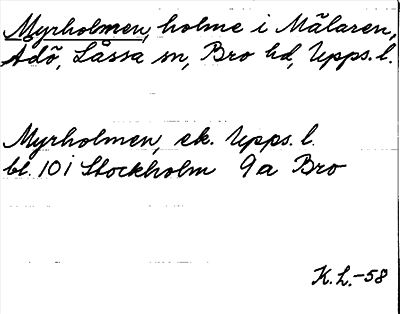 Myrholmen, holme i Mälaren,
Adö, Låssa sn, Bro hd, Upps. l.
Myrholmen, ek. Upps. l.
bl. 10 i Stockholm 9a Bro
K.L.-58